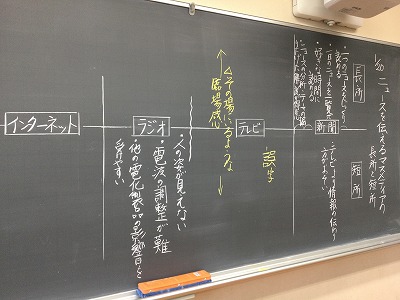 1/20 ニュースを伝えるマスメディアの
長所と短所
長所
短所
・一つのニュースをじっくり
伝える
・一日のニュースを一覧で
・好きな時間に
新聞
・テレビより情報の伝わり
方がおそい
誤字
テレビ
△その場にいるような
臨場感
ラジオ
・人の姿が見えない
・電波の調整が難
他の電化製品の影響を
受けやすい
インターネット